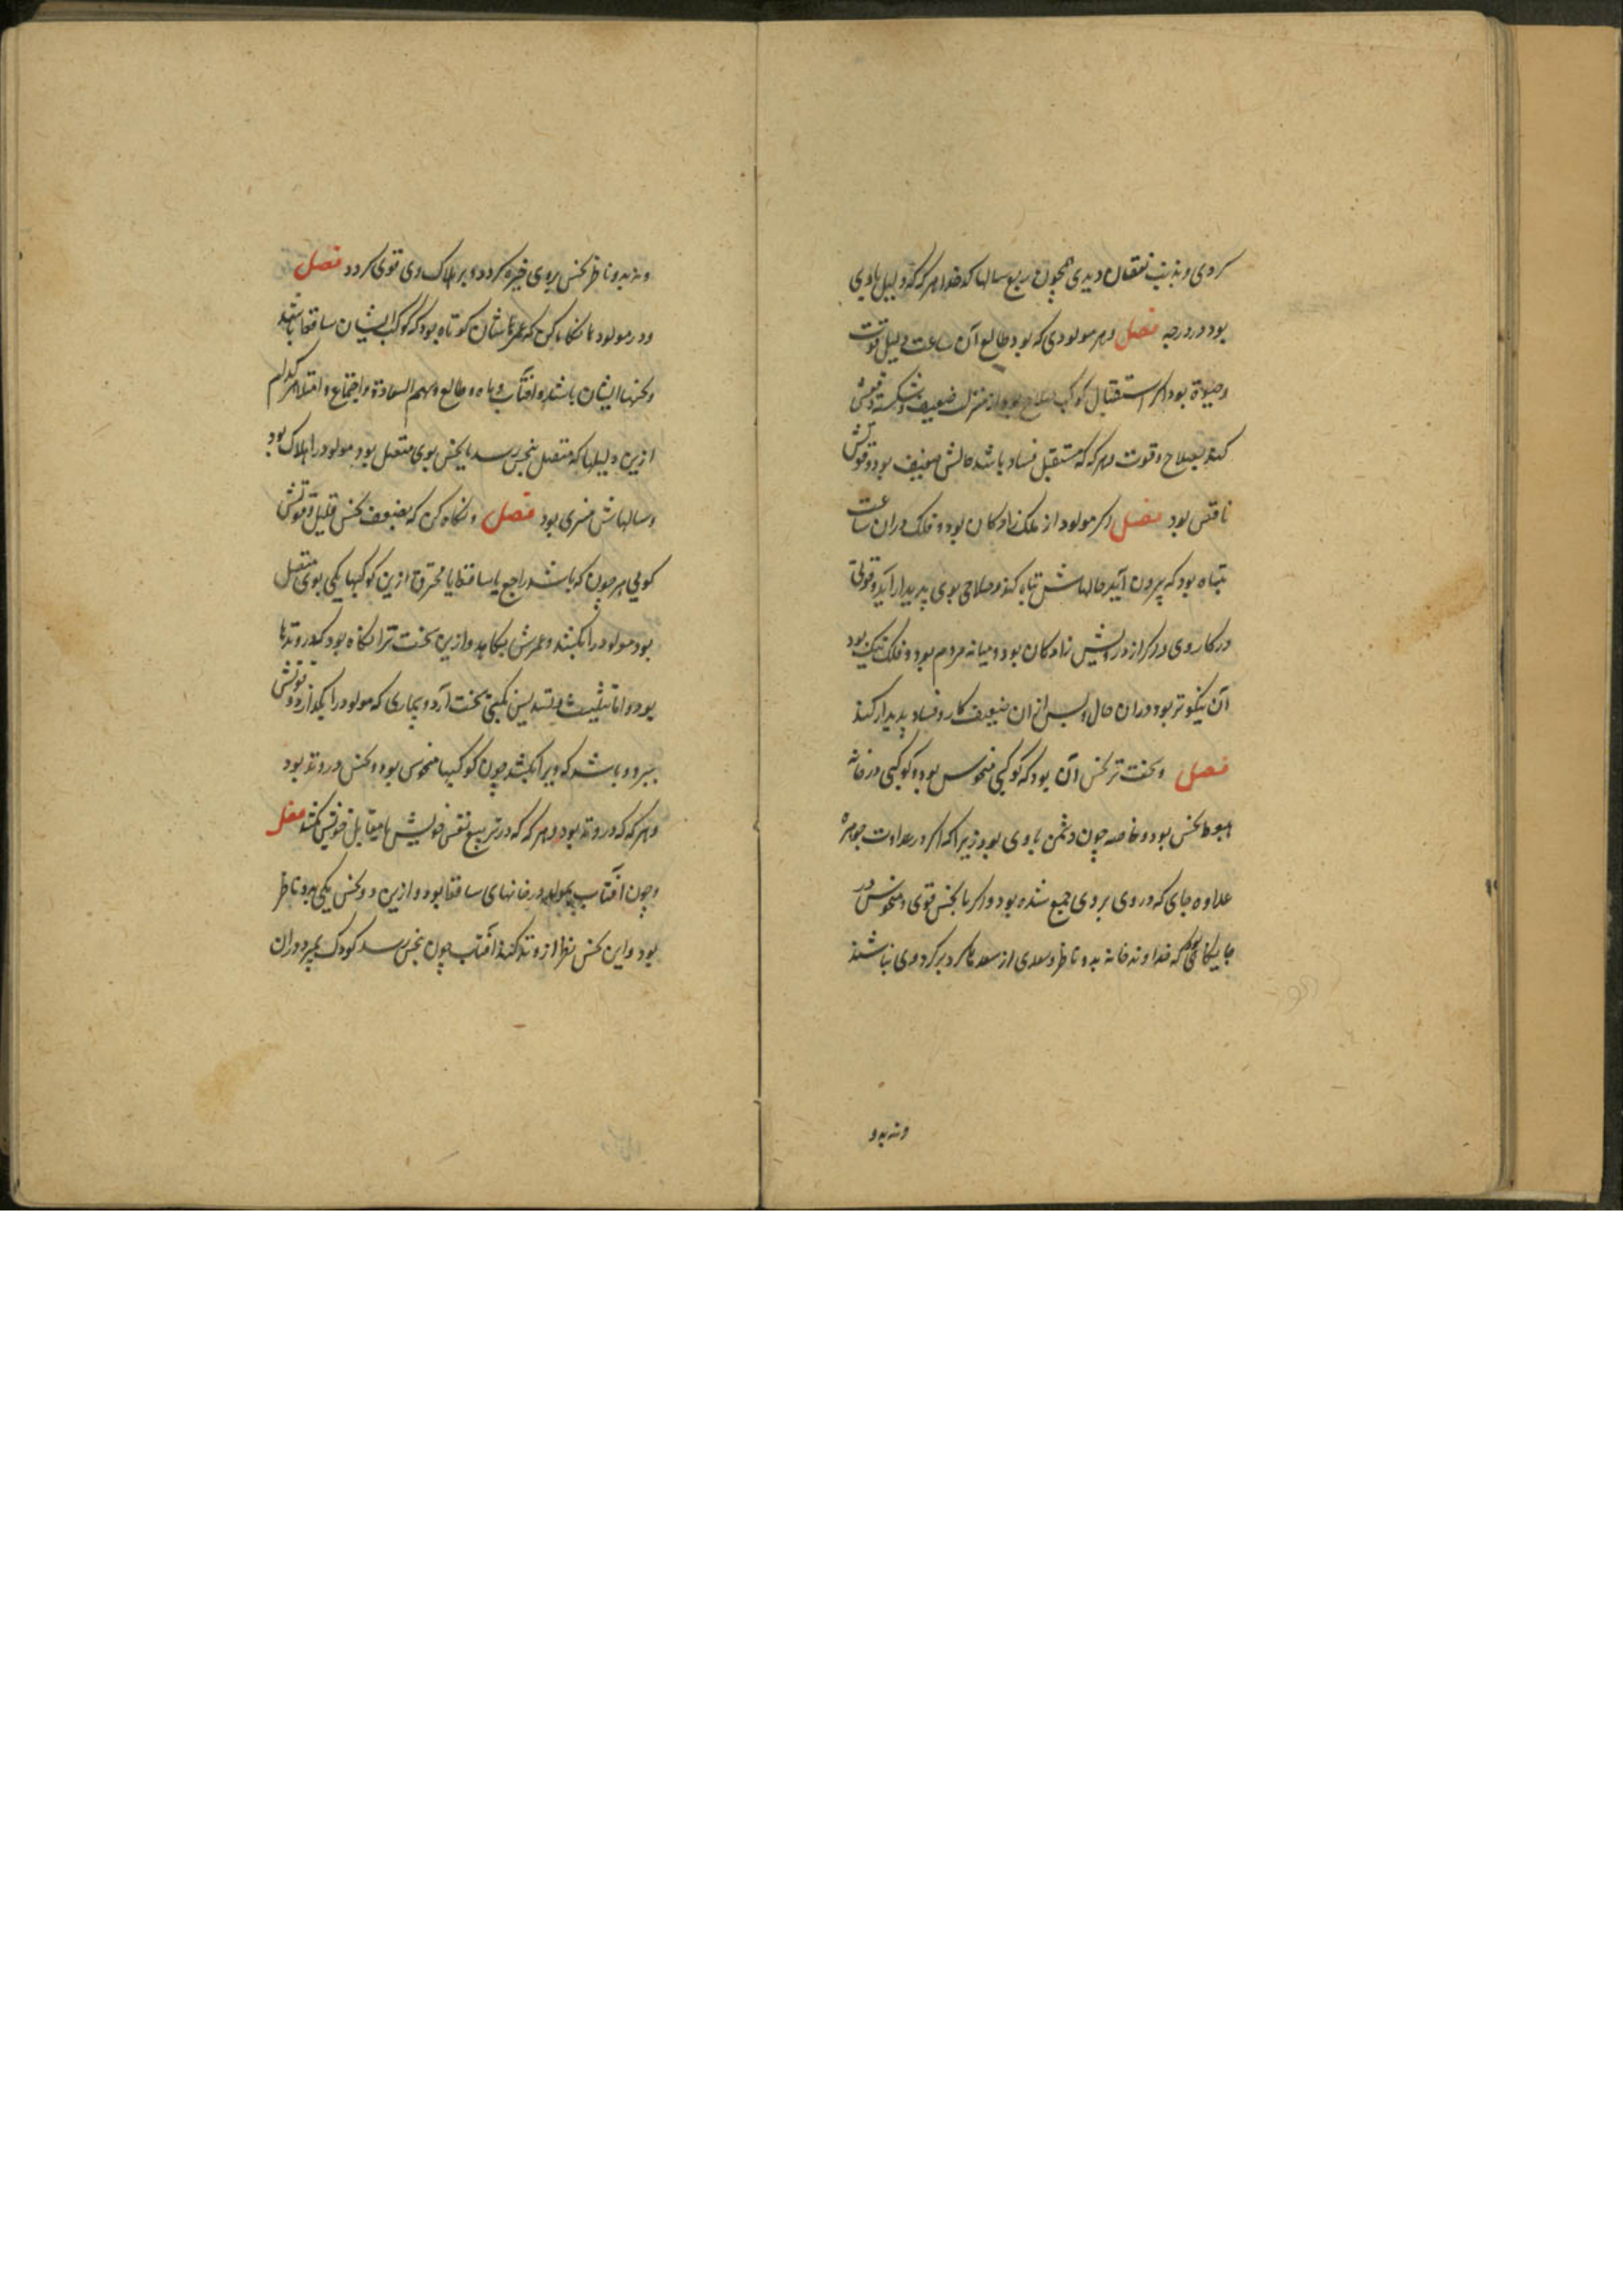 کردی و بذنب نقصان دیدی همچون ربع سالها کدخدا و هر که که دلیل باوی
بود در درجه فصل و هر مولودی که بود طالع آن ساعت دلیل قوت
و حیوة بود اگر استقبال کوکب صلاح بود از منزلت ضعیف و شکسته
کند بصلاح و قوت و هر که که مستقبل فساد باشد حالش ضعیف بود و قوتش
ناقص بود فصل و گر مولود از ملک زادکان بود و فلک دران ساعت
تباه بود که بیرون آید حالهاش تباه کند و صلاحی بوی پدیدار آید و قوتی
در کار وی و گر از درویش زادکان بود و میانه مردم بود و فلک نیک بود
آن نیکوتر بود دران حال و پس ازان ضعیف کار و فساد پدیدار کند
فصل و سخت تر نحس آن بود که کوکبی منحوس بود و کوکبی در خانه
هبوط نحس بود و خاصه چون دشمن باوی بود زیرا که اگر در عداوت جوهره
علاوه جای که در وی بروی جمع شده بود و اگر با نحس قوی و منحوس در
جایگاهی بود که خداوند خانه بدو ناظر و سعدی از سعد ها گرد بر گرد وی نباشند
و نه بدو
و نه بدو ناظر نحس بروی خیره گردد و بر هلاک وی قوی گردد فصل
و در مولود ها نگاه کن که عمرهاشان کوتاه بود که کوکب ایشان ساقط باشند
و نحسها ایشان باشند و آفتاب و ماه و طالع و سهم السعادة و اجتماع و امتلا هر کدام
ازین دلیلها که متصل بنحس رسد یا نحس بوی متصل بود مولود را هلاک بود
و سالهاش منبری بود فصل و نگاه کن که بضعف نحس و قلیل قوتش
کوئی هر چون که باشد راجع یا ساقط یا محترق ازین کوکبها یکی بوی متصل
بود مولود را بکشد و عمرش بکاهد و ازین سخت ترا نگاه بود که در وتدها
بود و اما تثلیث و تسدیس نکبتی سخت آرد و بیماری که مولود را بگدازد و قوتش
ببرد و باشد که ویرا بکشد چون کوکبها منحوس بود و نحس در وتد بود
و هر که که در وتد بود و هر که که در تربیع نفس خویش یا مقابل خویش بکشد فصل
و چون آفتاب بمولد در خانهای ساقط بود و ازین دو نحس یکی بدو ناظر
بود و این نحس نظر از وتد کند آفتاب چون بنحس رسد کودک بمیرد و ران